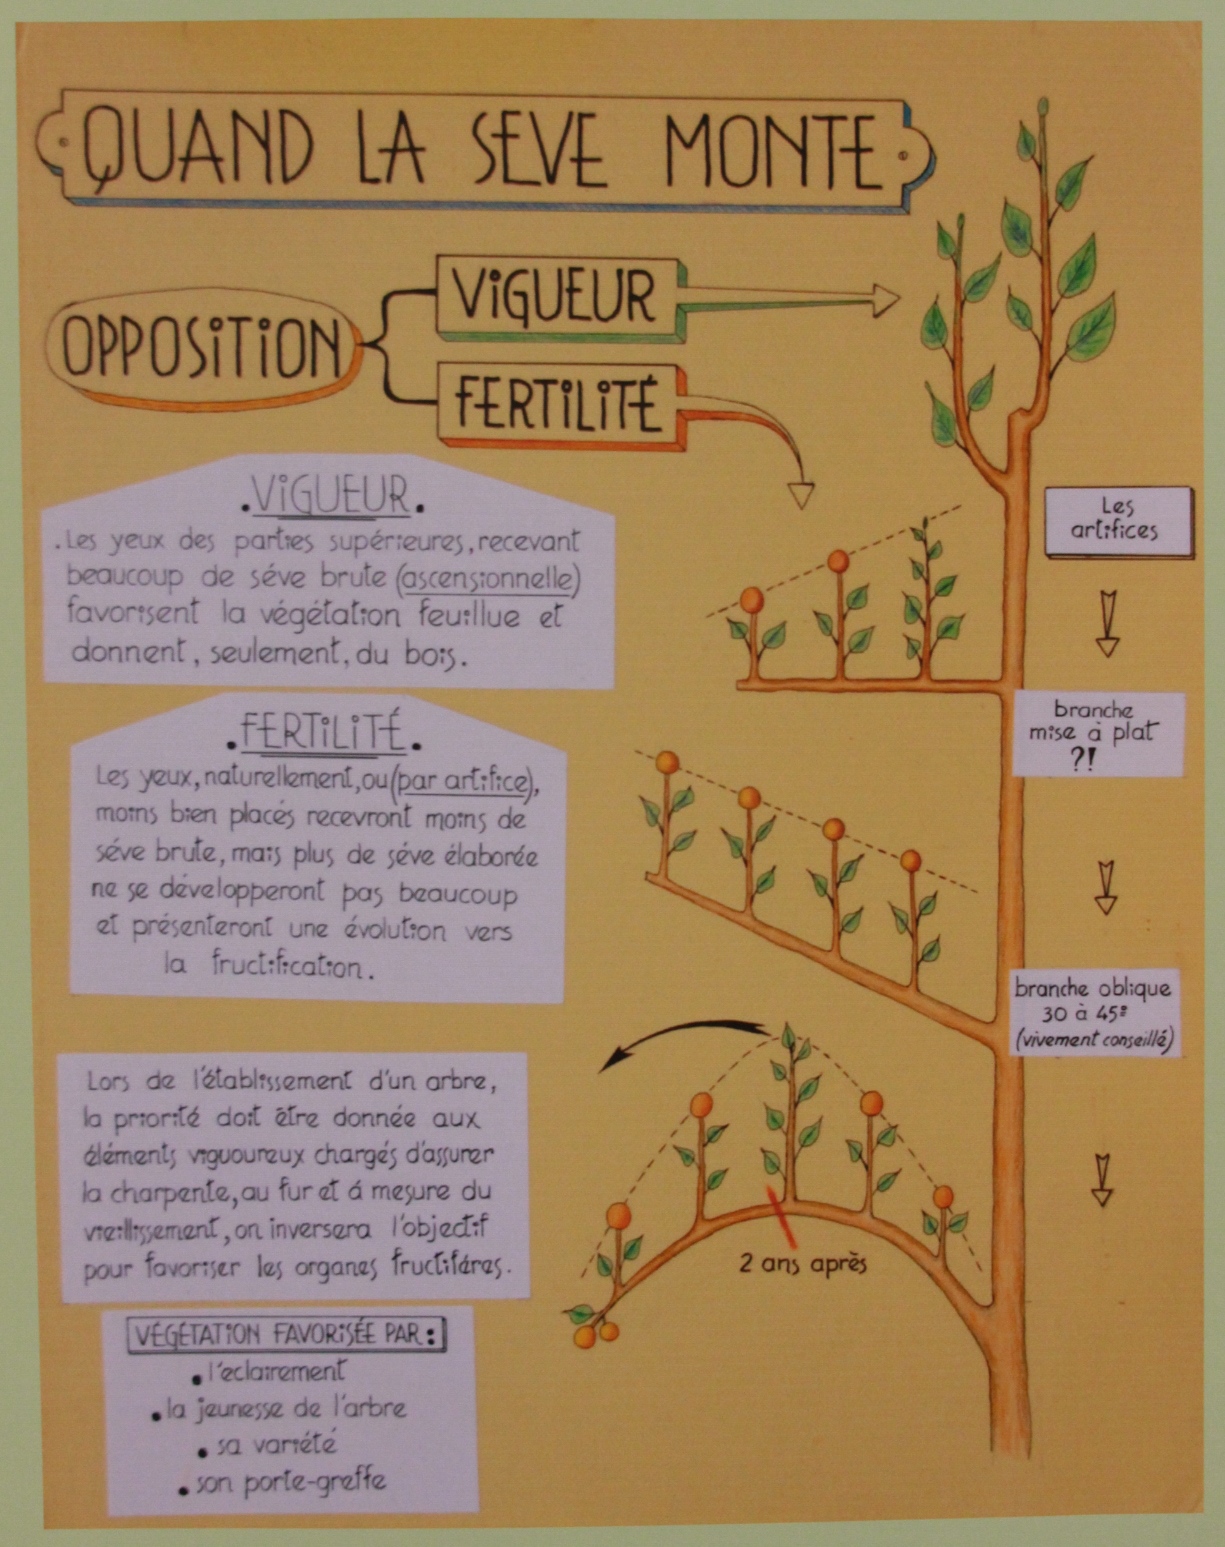 QUAND LA SEVE MONTE
OPPOSITION
VIGUEUR
FERTILITÉ
.VIGUEUR.
.Les yeux des parties supérieures, recevant
beaucoup de séve brute (ascensionnelle)
favorisent la végétation feuillue et
donnent, seulement, du bois.
.FERTILITÉ.
Les yeux, naturellement, ou (par artifice),
moins bien placés recevront moins de
séve brute, mais plus de séve élaborée
ne se développeront pas beaucoup
et présenteront une évolution vers
la fructification.
Lors de l'établissement d'un arbre,
la priorité doit être donnée aux
éléments viguoureux chargés d'assurer
la charpente, au fur et á mesure du
vieillissement, on inversera l'objectif
pour favoriser les organes fructiféres.
VÉGÉTATION FAVORISÉE PAR:
• l'eclairement
• la jeunesse de l'arbre
• sa variété
• son porte-greffe
Les
artifices
branche
mise à plat
?!
branche oblique
30 à 45°
(vivement conseillé)
2 ans après